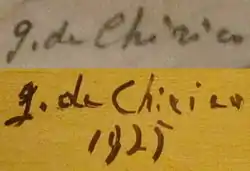 g. de Chirico
g. de Chirico
1925